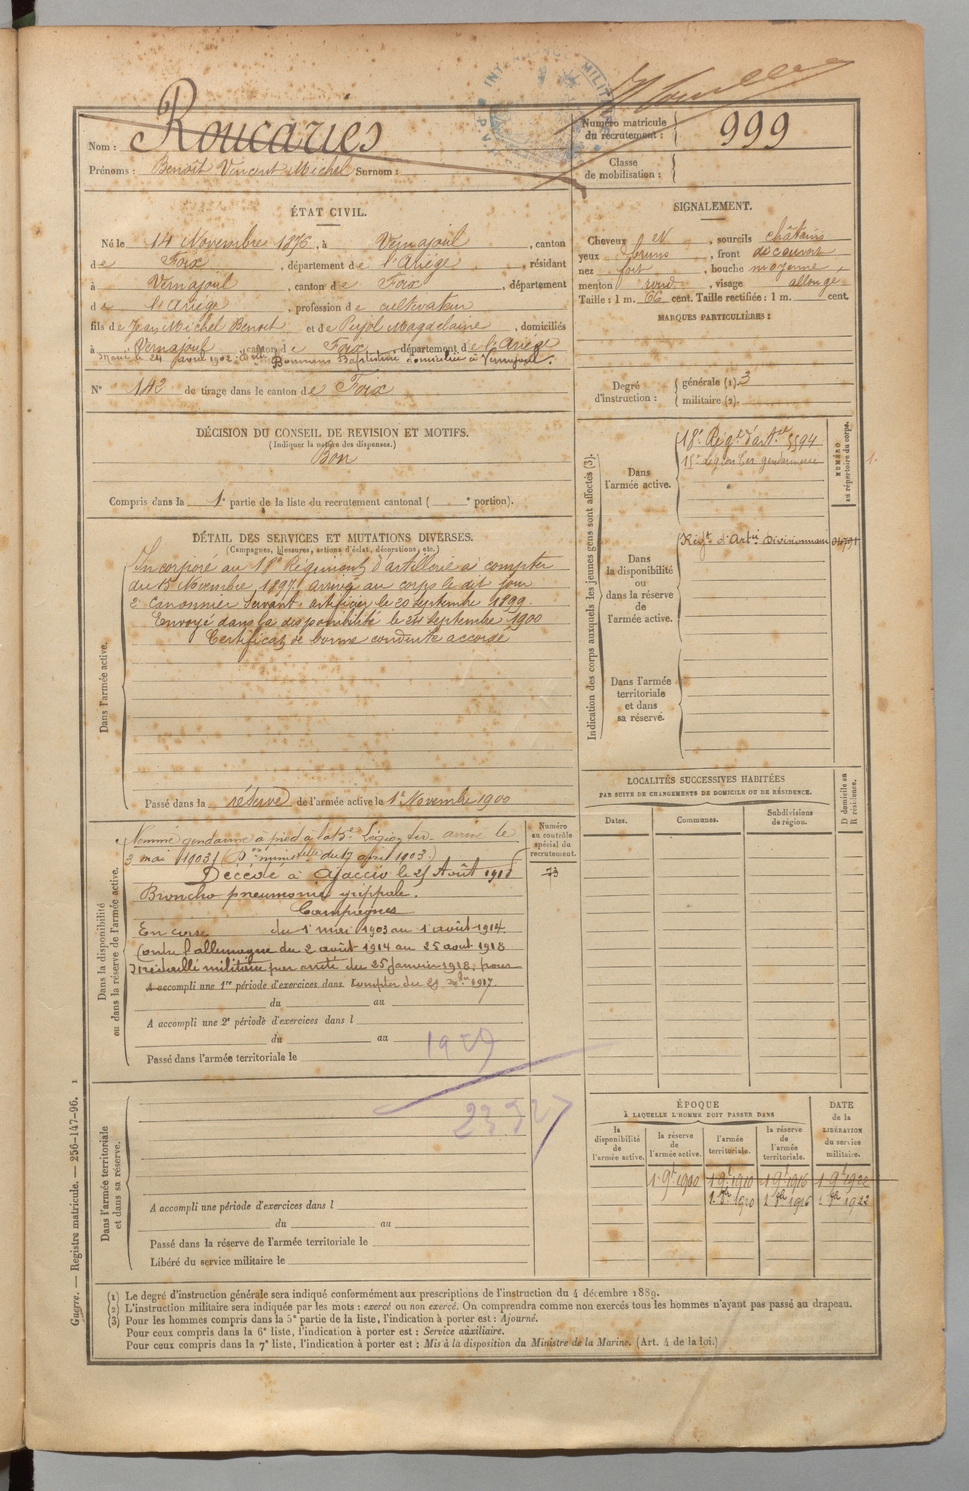 Nom : Roucariès
Numéro matricule du recrutement : 999
Prénoms : Benoît Vincent Michel Surnom :
Classe de mobilisation :
ÉTAT CIVIL.
Né le 14 Novembre 1876, à Vernajoul, canton
de Foix, département de l'Ariège, résidant
à Vernajoul, canton de Foix, département
de l'Ariège, profession de cultivateur
fils de Jean Michel Benoit et de Pujol Magdelaine, domiciliés
à Vernajoul, canton de Foix, département de l'Ariège
Marié le 24 avril 1902 à Bonnans Baptistine domiciliée à Vernajoul.
N° 142 de tirage dans le canton de Foix
SIGNALEMENT.
Cheveux et, sourcils châtains
yeux bruns, front découvert
nez fort, bouche moyenne,
menton rond, visage allongé
Taille : 1 m. 66 cent. Taille rectifiée : 1 m. cent.
MARQUES PARTICULIÈRES :
Degré d'instruction : générale (1). 3
militaire (2).
DÉCISION DU CONSEIL DE REVISION ET MOTIFS.
(Indiquer la nature des dispenses.)
Bon
Compris dans la 1e partie de la liste du recrutement cantonal ( e portion).
DÉTAIL DES SERVICES ET MUTATIONS DIVERSES.
(Campagnes, blessures, actions d'éclat, décorations, etc.)
Dans l'armée active.
Incorporé au 18e Régiment d'artillerie à compter
du 15 Novembre 1897, arrivé au corps le dit jour
2e canonnier servant, artificier le 20 septembre 1899.
Envoyé dans la disponibilité le septembre 1900
Certificat de bonne conduite accordé
Passé dans la réserve de l'armée active le 1er Novembre 1900
Indication des corps auxquels les jeunes gens sont affectés (3).
Dans l'armée active.
18e Régt d'Artie 5594
15e Légion bis gendarmerie
NUMÉRO au répertoire du corps.
1.
Dans la disponibilité ou dans la réserve de l'armée active.
Régt d'Artie Divisionnaire
Dans l'armée territoriale et dans sa réserve.
LOCALITÉS SUCCESSIVES HABITÉES
PAR SUITE DE CHANGEMENTS DE DOMICILE OU DE RÉSIDENCE.
Dates. Communes. Subdivisions de région.
D domicile ou R résidence.
Dans la disponibilité ou dans la réserve de l'armée active.
Numéro au contrôle spécial du recrutement.
73
Nommé gendarme à pied à la 15e Légion ter. arrivé le
3 mai 1903 (Don ministelle du 17 avril 1903.)
Décédé à Ajaccio le 25 Août 1918
Broncho pneumonie grippale.
Campagnes
En corse du 1er mai 1903 au 1er août 1914
Contre l'allemagne du 2 août 1914 au 25 août 1918
Médaillé militaire par arrêté du 25 janvier 1918, pour
A accompli une 1re période d'exercices dans compter du 1917.
du au
A accompli une 2e période d'exercices dans l
du au
Passé dans l'armée territoriale le
Dans l'armée territoriale et dans sa réserve.
A accompli une période d'exercices dans l
du au
Passé dans la réserve de l'armée territoriale le
Libéré du service militaire le
ÉPOQUE
À LAQUELLE L'HOMME DOIT PASSER DANS
la disponibilité de l'armée active.
la réserve de l'armée active.
l'armée territoriale.
la réserve de l'armée territoriale.
DATE de la LIBÉRATION du service militaire.
1er 9bre 1900 1er 9bre 1910 1er 9bre 1916 1er 9bre 1922
1910 1916 1922
(1) Le degré d'instruction générale sera indiqué conformément aux prescriptions de l'instruction du 4 décembre 1889.
(2) L'instruction militaire sera indiquée par les mots : exercé ou non exercé. On comprendra comme non exercés tous les hommes n'ayant pas passé au drapeau.
(3) Pour les hommes compris dans la 5e partie de la liste, l'indication à porter est : Ajourné.
Pour ceux compris dans la 6e liste, l'indication à porter est : Service auxiliaire.
Pour ceux compris dans la 7e liste, l'indication à porter est : Mis à la disposition du Ministre de la Marine. (Art. 4 de la loi.)
Guerre. — Registre matricule. — 256-147-96. 1